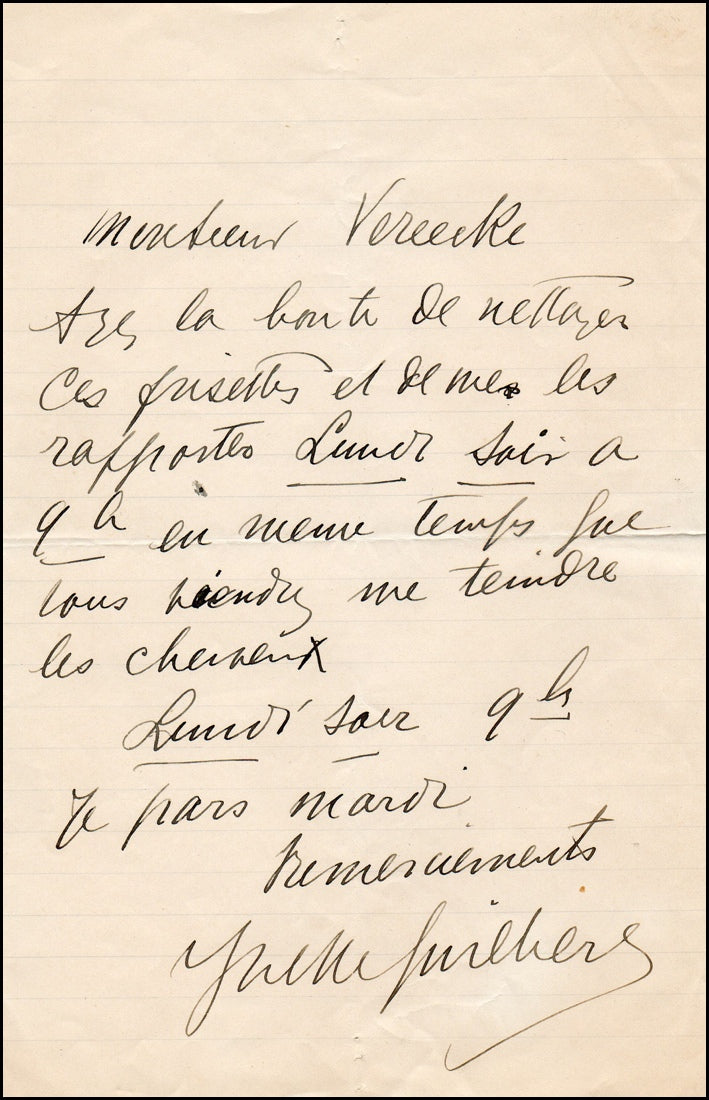 Monsieur Vereecke
Ayez la bonté de nettoyer
ces frisettes et de me les
rapporter Lundi Soir a
9h en meme temps que
vous viendrez me teindre
les cheveux
Lundi Soir 9 hs
Je pars mardi
Remerciements
Yvette Guilbert